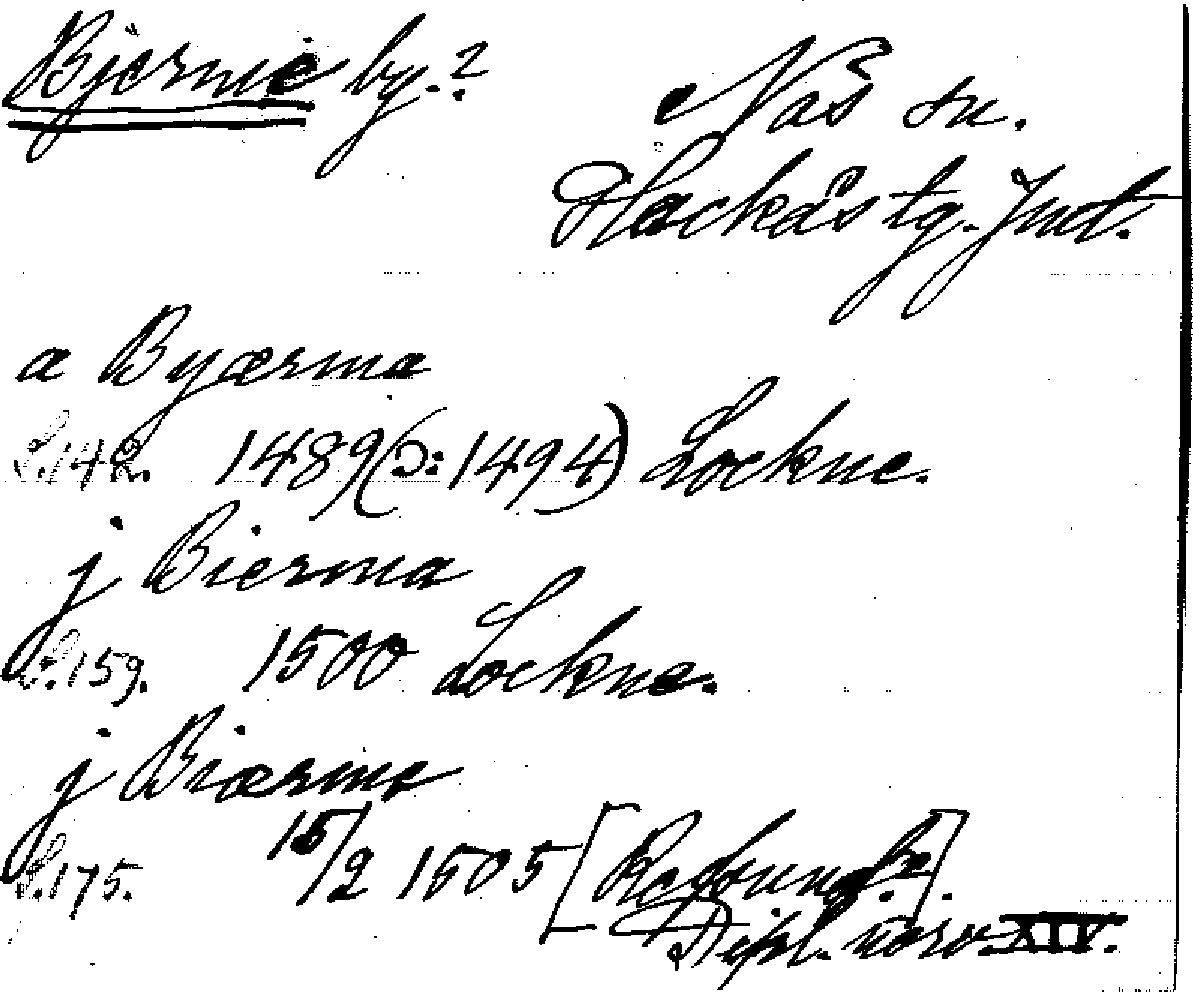 Bjerme by.?
Näs sn.
Hackås tg. Jmtl.
a Byærma
S.142. 1489(ↄ: 1494) Lockne.
j Bierma
S.159. 1500 Lockne.
j Biærme
S.175. 15/2 1505 [Refsund.?].
Dipl. norv. XIV.